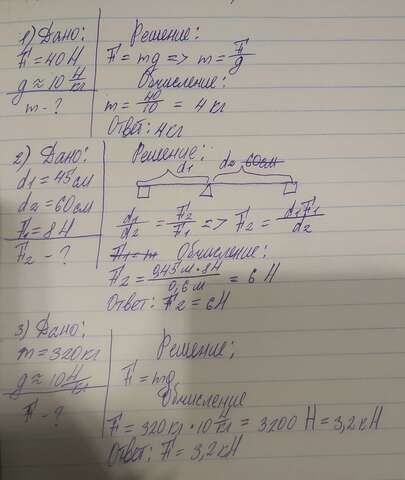 1) Дано:
F = 40 Н
g ≈ 10 Н/кг
m - ?
Решение:
F = mg => m = F/g
Вычисление:
m = 40/10 = 4 кг
Ответ: 4 кг
2) Дано:
d1 = 45 см
d2 = 60 см
F1 = 8 Н
F2 - ?
Решение:
d1 d2 60 см
d1/d2 = F2/F1 => F2 = d1F1/d2
F1 = m Вычисление:
F2 = 0,45 м · 8 Н/0,6 м = 6 Н
Ответ: F2 = 6 Н
3) Дано:
m = 320 кг
g ≈ 10 Н/кг
F - ?
Решение:
F = mg
Вычисление
F = 320 кг · 10 Н/кг = 3200 Н = 3,2 кН
Ответ: F = 3,2 кН